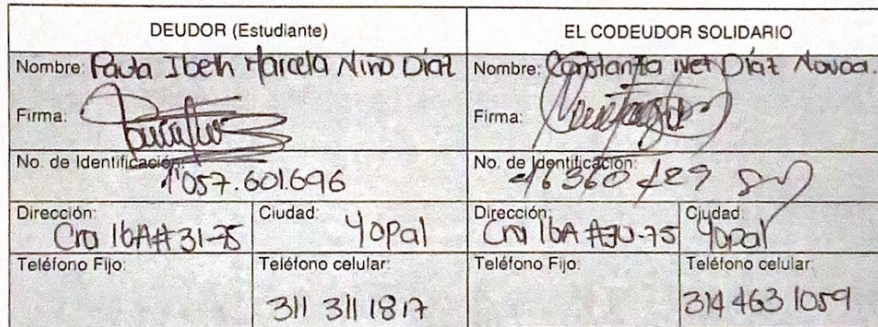 DEUDOR (Estudiante) EL CODEUDOR SOLIDARIO
Nombre: Paula Ibeth Marcela Niño Díaz Nombre: Constanza Ivet Díaz Novoa.
Firma: Firma:
No. de Identificación: 1'057.601.696 No. de Identificación:
Dirección: Cra 16A # 31-75 Ciudad: Yopal Dirección: Cra 16A #30-75 Ciudad: Yopal
Teléfono Fijo: Teléfono celular: 311 311 1817 Teléfono Fijo: Teléfono celular: 314 463 1059